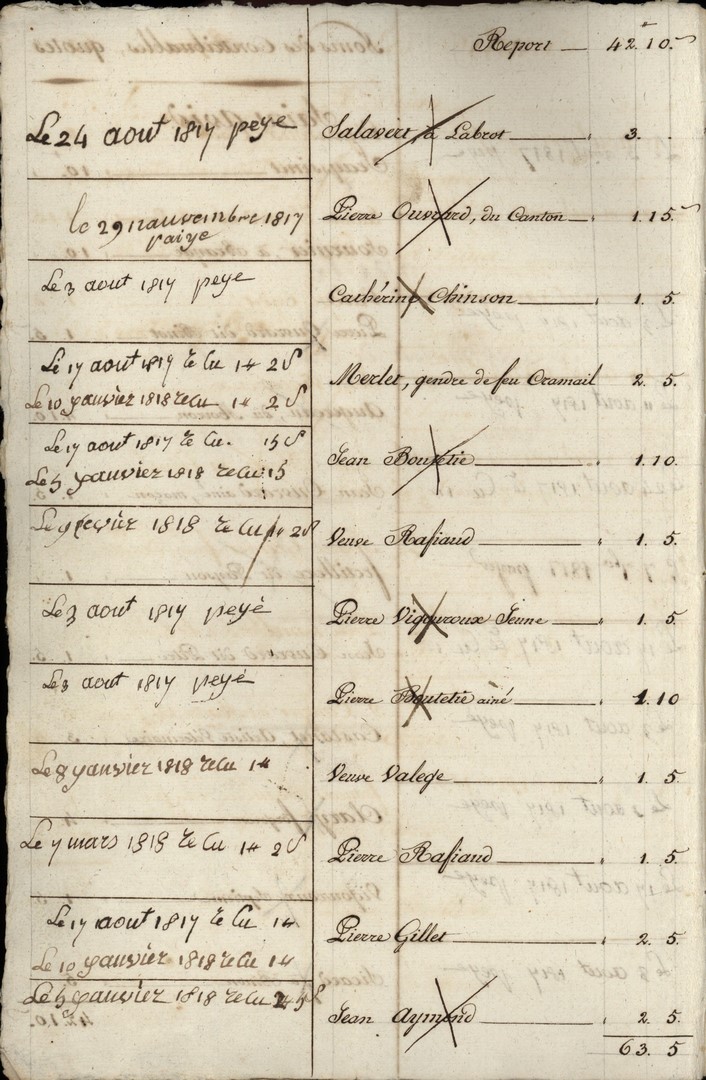 Report — 42. 10.
Le 24 aout 1817 peye Salavert, à Labrot — 3.
le 29 nauvembre 1817 Pierre Ouvrard, du Canton — 1. 15
paiye
Le 3 aout 1817 peye Cathérine Chinson — 1. 5.
Le 17 aout 1817 re Cu 1# 2 S Merlet, gendre de feu Cramail 2. 5.
Le 10 yanvier 1818 re Cu 1# 2 S
Le 17 aout 1817 re Cu. 15 S Jean Boutetie — 1. 10.
Le 5 yanvier 1818 re Cu 15
Le 9 fevrier 1818 re Cu 1# 2 S Veuve Rafiaud — 1. 5
Le 3 aout 1817 peyé Pierre Vigouroux Jeune — 1. 5
Le 3 aout 1817 peyé Pierre Boutetie ainé — 1. 10
Le 8 yanvier 1818 re Cu 1# Veuve Valege — 1. 5
Le 7 mars 1818 re Cu 1# 2 S Pierre Rafiaud — 1. 5
Le 17 aout 1817 re Cu 1# Pierre Gillet — 2. 5.
Le 10 yanvier 1818 re Cu 1#
Le 5 yanvier 1818 re Cu 2# 5 S Jean Aymond — 2. 5.
63. 5